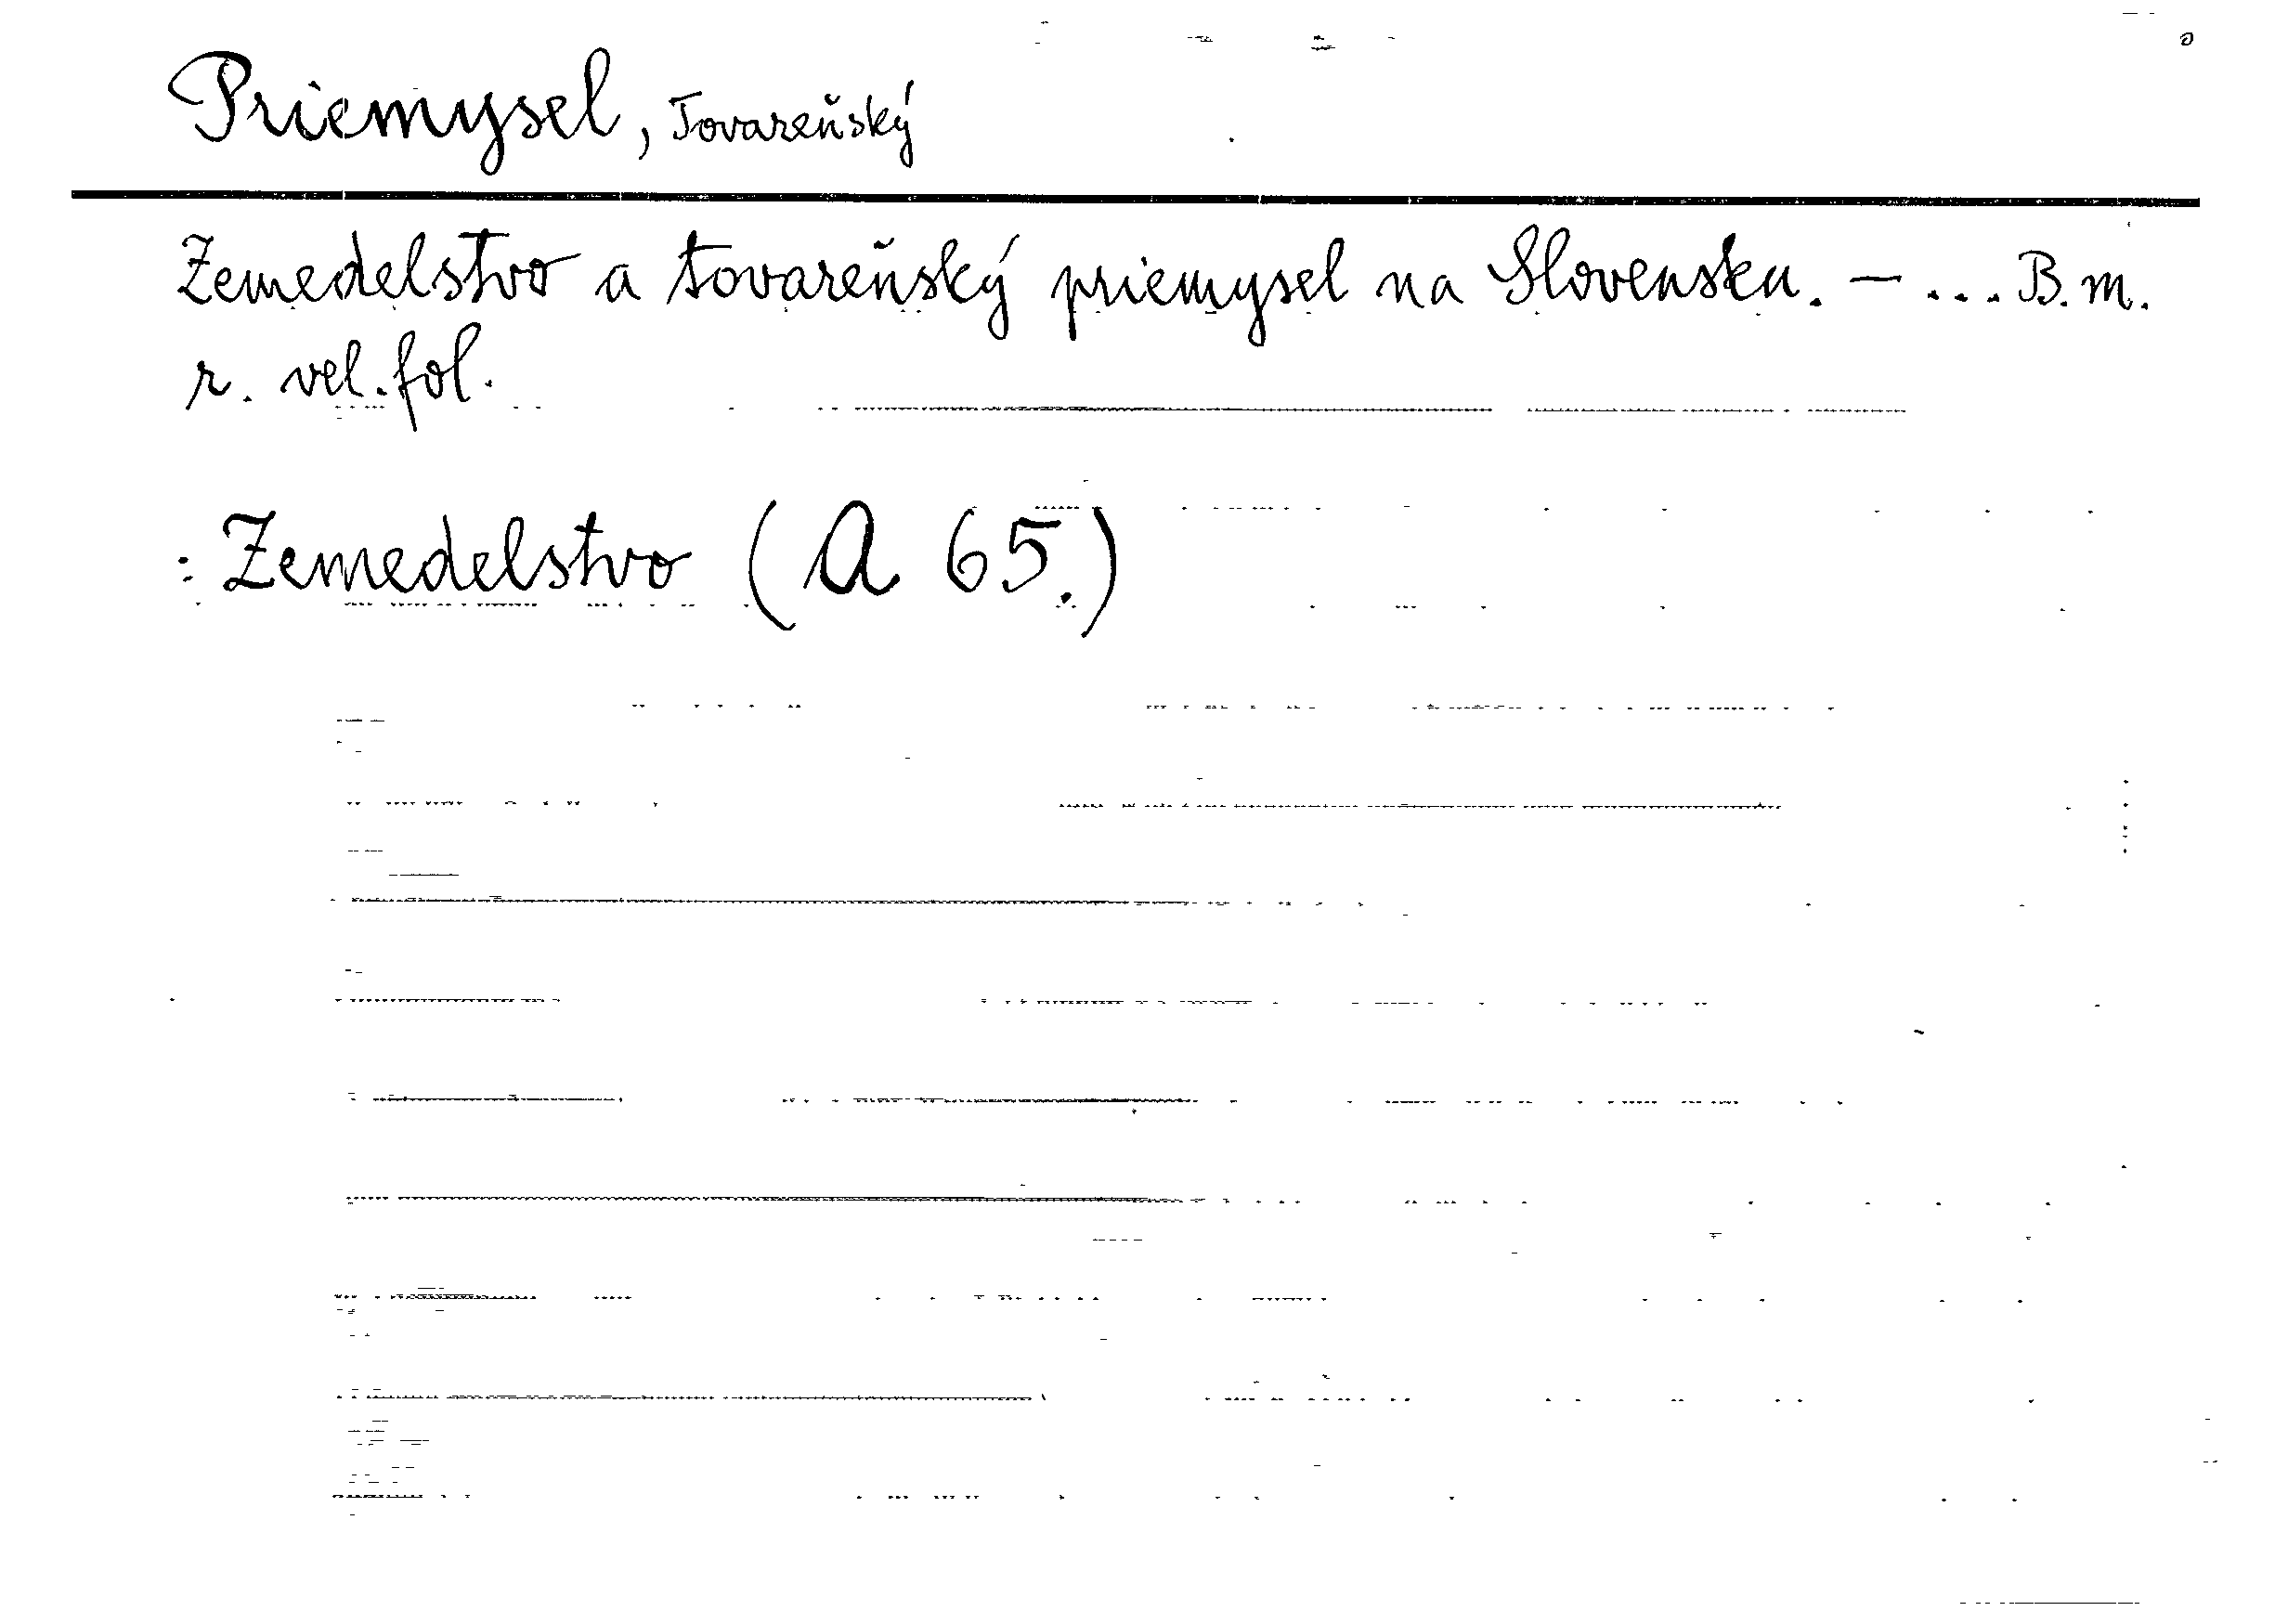 Priemysel, Tovareňský
Zemedelstvo a tovareňský priemysel na Slovensku. — ... B. m.
r. vel. fol.
: Zemedelstvo (A 65.)